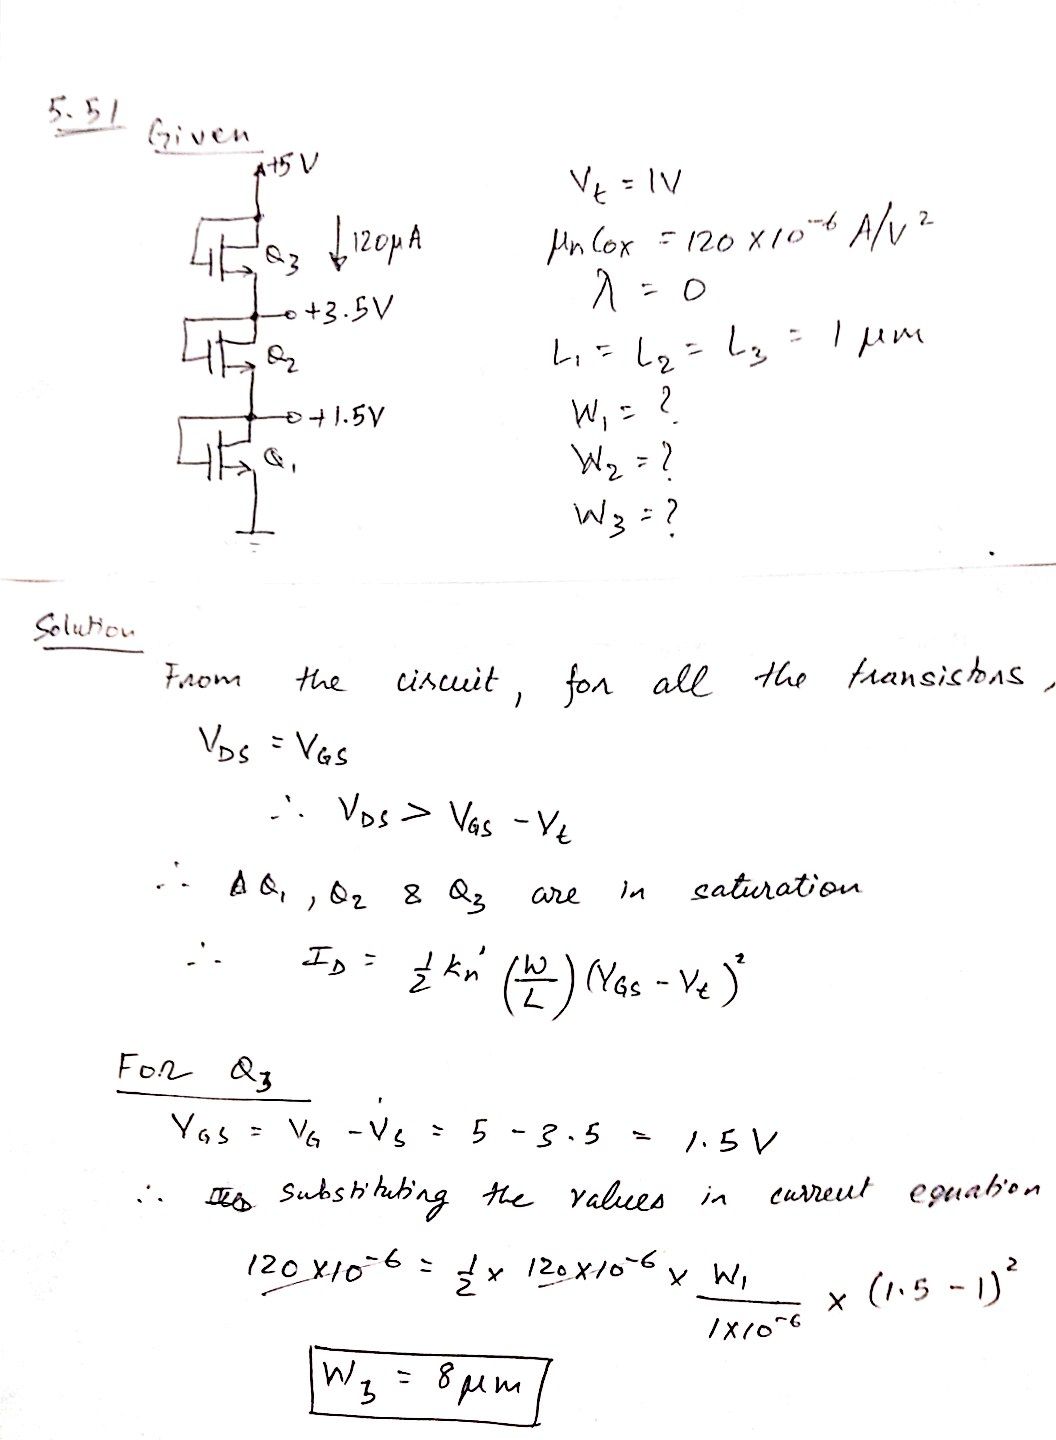 5.51
Given
+5V
Q3 ↓120μA
+3.5V
Q2
+1.5V
Q1
Vt = 1V
μn Cox = 120 × 10⁻⁶ A/V²
λ = 0
L1 = L2 = L3 = 1 μm
W1 = ?
W2 = ?
W3 = ?
Solution
From the circuit, for all the transistors,
VDS = VGS
∴ VDS > VGS - Vt
∴ Q1, Q2 & Q3 are in saturation
∴ ID = 1/2 kn' (W/L) (VGS - Vt)²
For Q3
VGS = VG - VS = 5 - 3.5 = 1.5V
∴ substituting the values in current equation
120 × 10⁻⁶ = 1/2 × 120 × 10⁻⁶ × W1/1×10⁻⁶ × (1.5 - 1)²
W3 = 8 μm